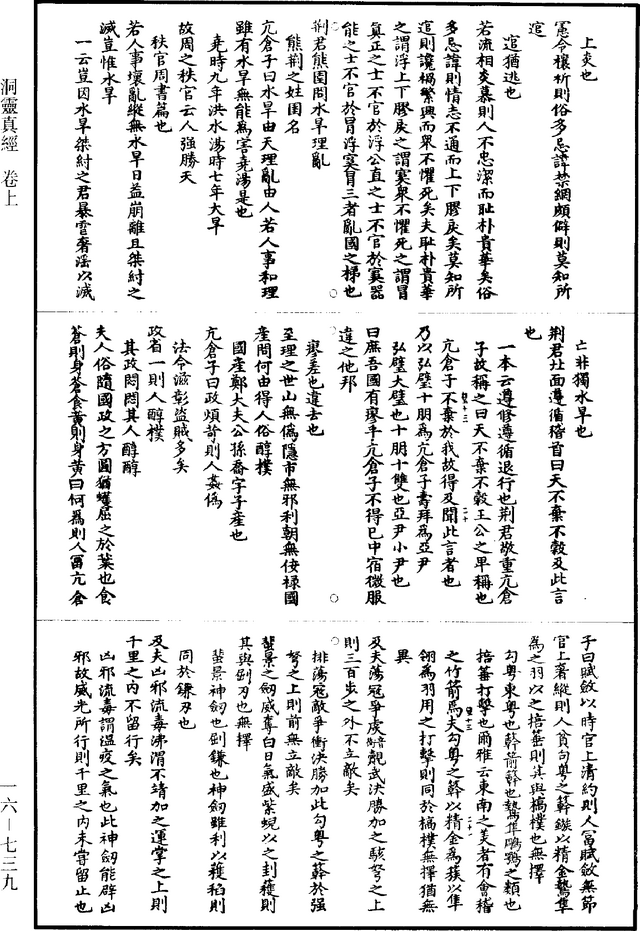 上炎也
冤令禳祈則俗多忌諱禁網頗僻則莫知所
逭
逭猶逃也
若流相炎慕則人不忠潔而恥朴貴華矣俗
多忌諱則情志不通而上下膠戾矣莫知所
逭則讒禍繁興而衆不懼死矣夫恥朴貴華
之謂浮上下膠戾之謂寞衆不懼死之謂冒
真正之士不官於浮公直之士不官於寞器
能之士不官於冒浮寞冒三者亂國之梯也
荆君熊圉問水旱理亂
熊荆之姓圉名
亢倉子曰水旱由天理亂由人若人事和理
雖有水旱無能爲害堯湯是也
堯時九年洪水湯時七年大旱
故周之秩官云人强勝天
秩官周書篇也
若人事壞亂縱無水旱日益崩離且桀紂之
滅豈惟水旱
一云豈因水旱桀紂之君暴虐奢滛以滅
亡非獨水旱也
荆君北面遵循稽首曰天不棄不穀及此言
也
一本云遵修遵循退行也荆君敬重亢倉
子故稱之曰天不棄不穀王公之卑稱也
亢倉子不棄於我故得及聞此言者也
乃以弘璧十朋爲亢倉子壽拜爲亞尹
弘璧大璧也十朋十雙也亞尹小尹也
曰庶吾國有瘳乎亢倉子不得已中宿微服
違之他邦
瘳差也違去也
至理之世山無僞隱市無邪利朝無佞祿國
産問何由得人俗醇樸
國産鄭大夫公孫喬字子産也
亢倉子曰政煩苛則人姦僞
法令滋彰盜賊多矣
政省一則人醇樸
其政悶悶其人醇醇
夫人俗隨國政之方圓猶蠖屈之於葉也食
蒼則身蒼食黄則身黄曰何爲則人冨亢倉
子曰賦斂以時官上清約則人冨賦斂無節
官上奢縱則人貧勾粤之簳鏃以精金鷙隼
爲之羽以之掊箠則其與槁樸也無擇
勾粤東粤也簳箭簳也鷙隼鵰鶚之類也
掊箠打擊也爾雅云東南之美者有會稽
之竹箭焉夫勾粤之簳以精金爲鏃以隼
翎爲羽用之打擊則同於槁樸無擇猶無
異
及夫蕩寇爭虔覘武決勝加之駭弩之上
則三百步之外不立敵矣
排蕩寇敵爭衝決勝加此勾粤之簳於强
弩之上則前無立敵矣
蜚景之劒威奪白日氣盛紫蜺以之刲穫則
其與剈刃也無擇
蜚景神劒也剈鎌也神劒雖利以穫稻則
同於鎌刃也
及夫凶邪流毒沸渭不靖加之運掌之上則
千里之内不留行矣
凶邪流毒謂温疫之氣也此神劒能辟凶
邪故威光所行則千里之内未甞留止也
洞靈真經 卷上
一六－七三九